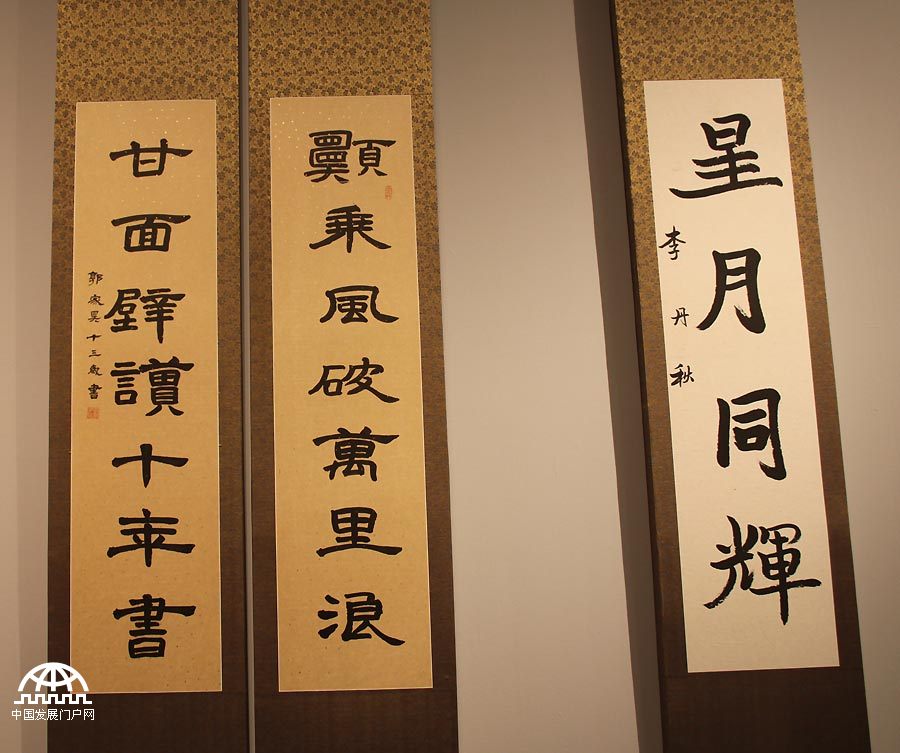 星月同輝
李丹秋
願乘風破萬里浪
甘面壁讀十年書
郭家昊十三歲書
中国发展门户网